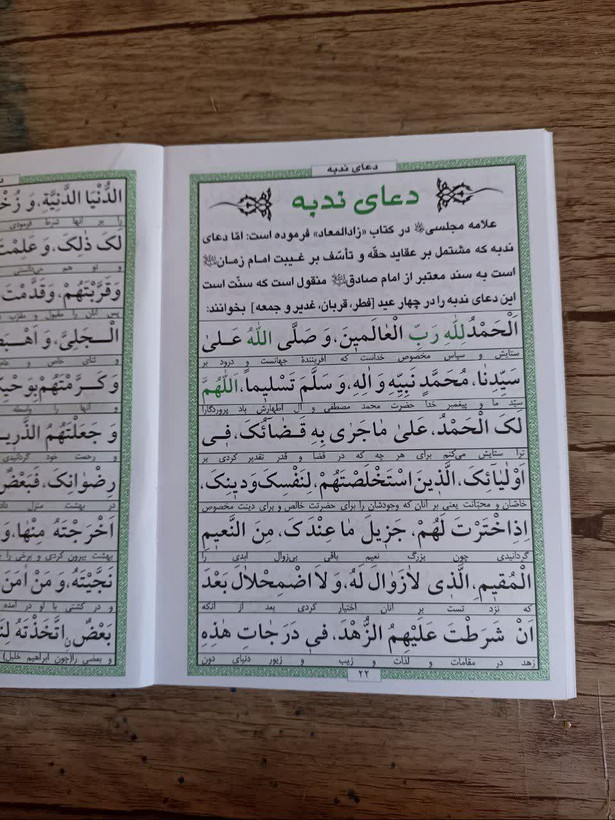 دعای ندبه
دعای ندبه
علامه مجلسی در کتاب «زادالمعاد» فرموده است: امّا دعای
ندبه که مشتمل بر عقاید حقّه و تأسّف بر غیبت امام زمان
است به سند معتبر از امام صادق منقول است که سنّت است
این دعای ندبه را در چهار عید [فطر، قربان، غدیر و جمعه] بخوانند:
اَلْحَمْدُ لِلّٰهِ رَبِّ الْعٰالَمینَ، وَ صَلَّی اللّٰهُ عَلیٰ
ستایش و سپاس مخصوص خداست که آفرینندهٔ جهانست و درود بر
سَیِّدِنٰا، مُحَمَّدٍ نَبِیِّهِ وَ اٰلِهِ، وَ سَلَّمَ تَسْلیماً، اَللّٰهُمَّ
سیّد ما و پیغمبر خدا حضرت محمد مصطفی و آل اطهارش باد پروردگارا
لَکَ الْحَمْدُ، عَلیٰ مٰاجَرٰی بِهِ قَضٰائُکَ، فی
ترا ستایش می‌کنم برای هر چه که در قضا و قدر تقدیر کردی بر
اَوْلِیٰائِکَ، الَّذینَ اسْتَخْلَصْتَهُمْ، لِنَفْسِکَ وَ دینِکَ،
خاصّان و محبّانت یعنی بر آنان که وجودشان را برای حضرتت خالص و برای دینت مخصوص
اِذِاخْتَرْتَ لَهُمْ، جَزیلَ مٰا عِنْدَکَ، مِنَ النَّعیمِ
گردانیدی چون بزرگ نعیم باقی بی‌زوال ابدی را
الْمُقیمِ، الَّذی لاٰزَوٰالَ لَهُ، وَ لاَ اضْمِحْلاٰلَ بَعْدَ
که نزد تست بر آنان اختیار کردی بعد از آنکه
اَنْ شَرَطْتَ عَلَیْهِمُ الزُّهْدَ، فی دَرَجٰاتِ هٰذِهِ
زهد در مقامات و لذات و زیب و زیور دنیای دون
۲۲
الدُّنْیَا الدَّنِیَّةِ، وَ
را بر آنها شرط فرمودی
لَکَ ذٰلِکَ، وَ عَلِمْتَ
و تو هم می‌دانستی
وَ قَرَّبْتَهُمْ، وَ قَدَّمْتَ
پس آنان را مقبول و مقرب
الْجَلِیَّ، وَ
و ثنای خاص و
وَ کَرَّمْتَهُمْ
و آنها را واسطه
وَ جَعَلْتَهُمُ
و رحمت خود گردانیدی
رِضْوٰانِکَ، فَبَعْضٌ
در بهشت منزل
اَخْرَجْتَهُ مِنْهٰا، وَ
بهشت بیرون کردی و برخی را
نَجَّیْتَهُ، وَ مَنْ اٰمَنَ
و در کشتی با او در آمده
بَعْضٌ اتَّخَذْتَهُ
و بعضی را (چون ابراهیم خلیل)